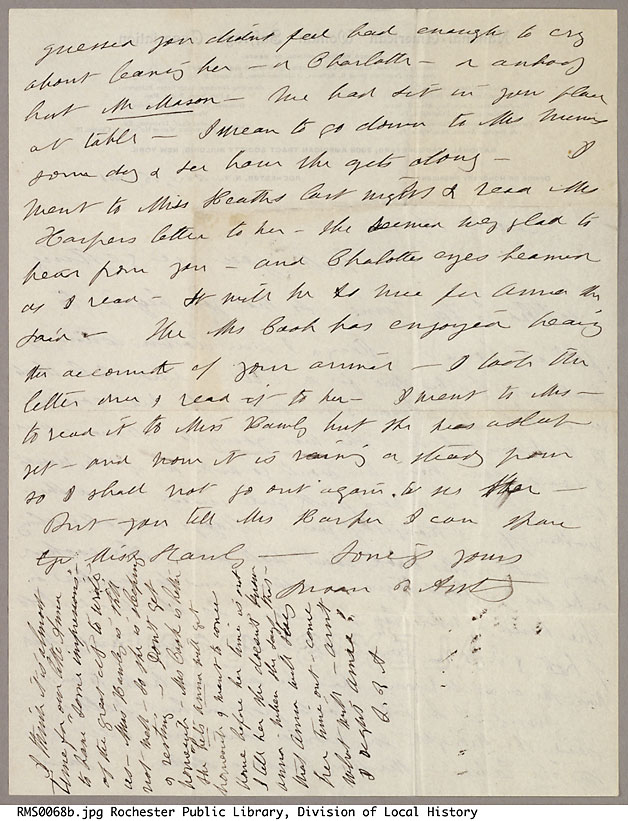 guessed you didn't feel bad enough to cry
about leaving her - or Charlotte - or anybody
but Mr Mason - We had sit in your place
at table - I mean to go down to Mrs
some day & see how she gets along - I
went to Miss last night & read Mrs
Harpers letter to her - she seemed very glad to
hear from you - and Charlottes eyes beamed
as I read - It will be so nice for Anna she
said - The Mrs Cook has enjoyed hearing
the account of your arrival - I took the
letter over & read it to her - I went to Mrs -
to read it to Miss Hawly but she was asleep
yet - and now it is raining a steady pour
so I shall not go out again to see her -
But you tell Mrs Harper I can spare
Miss Hawly - Loveg yours
Susan B Anthony
I think it is almost
time for our little Anna
to hear some impressions
of the great city to write
us - Mrs Hawley is still
not well - So she is sleeping
& resting - Don't get
homesick - Mrs Cook is
she tells Anna will get
homesick & want to come
home before her time is out
I tell her she doesn't know
Anna when she says that -
that Anna will stay
her time out - come
what will - aint
I right Anna?
S. B A
RMS0068b.jpg Rochester Public Library, Division of Local History